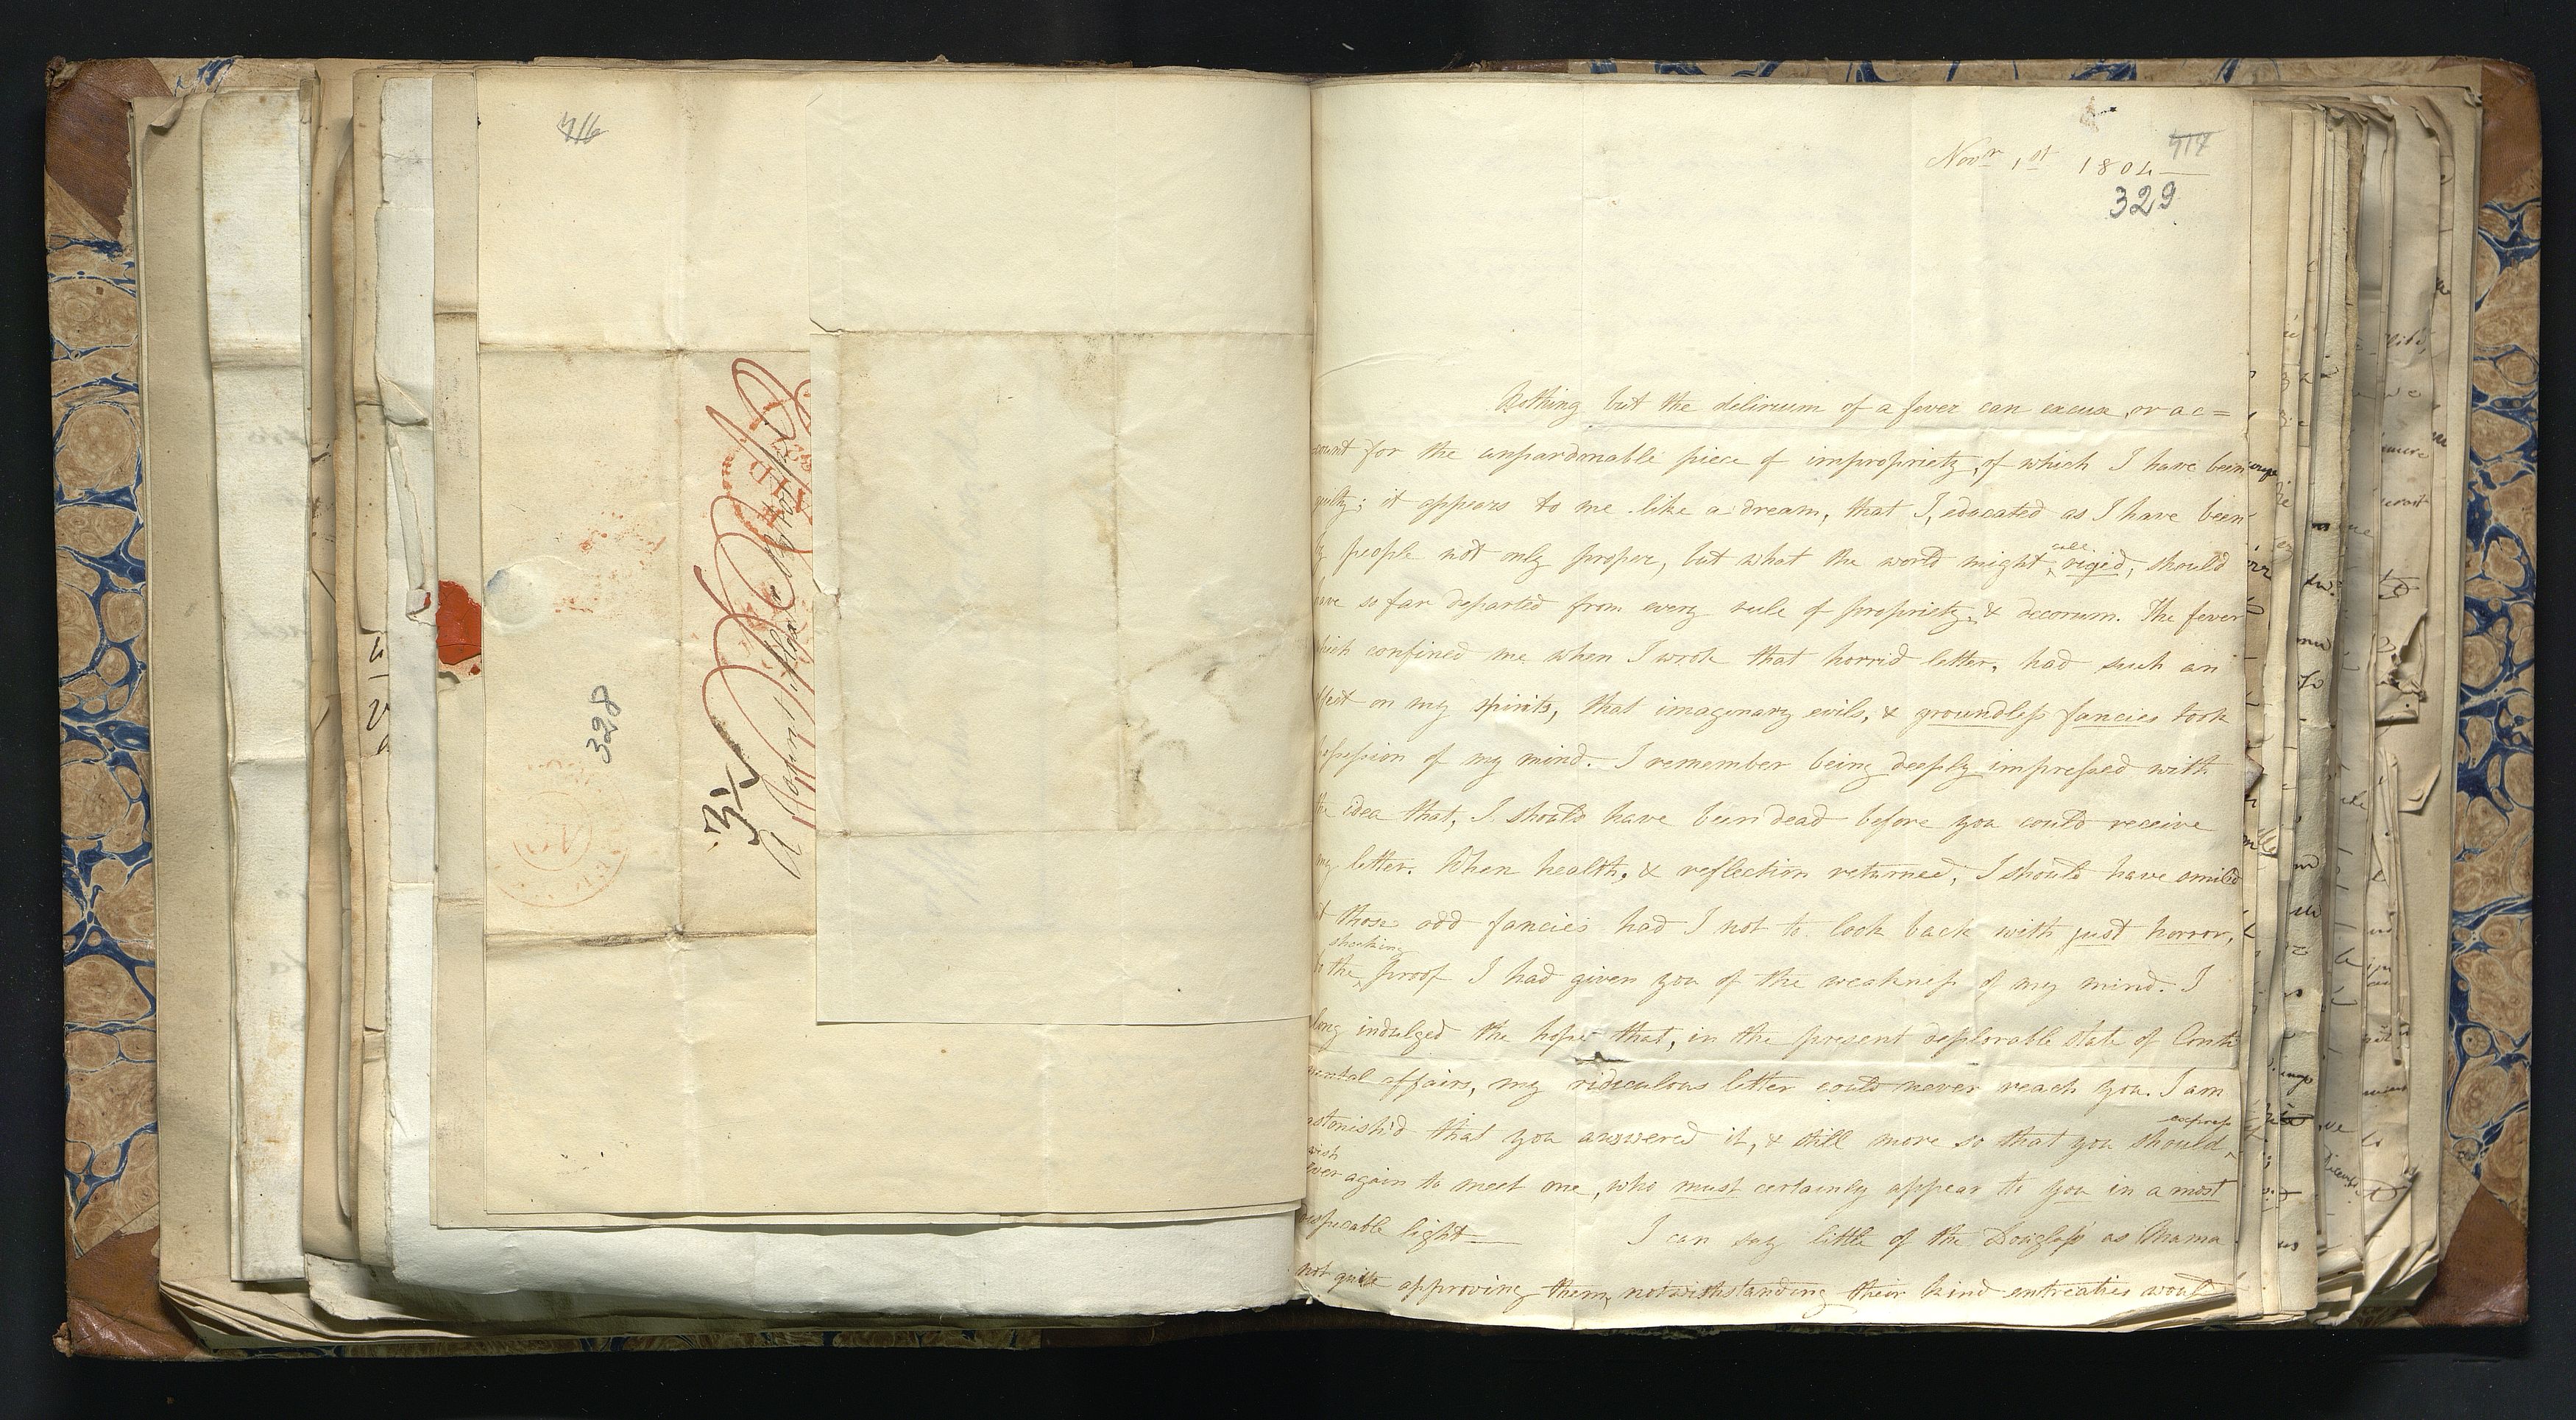 416
328
Novr 1st 1804
417
329
Nothing but the delirium of a fever can excuse, or ac=
count for the unpardonable piece of impropriety, of which I have been
guilty; it appears to me like a dream, that I, educated as I have been
by people not only proper, but what the world might call rigid, should
have so far departed from every rule of propriety, & decorum. The fever
which confined me when I wrote that horrid letter, had such an
effect on my spirits, that imaginary evils, & groundless fancies took
possession of my mind. I remember being deeply impressed with
the idea that, I should have been dead before you could receive
my letter. When health, & reflection returned, I should have smiled
at those odd fancies had I not to look back with just horror,
to the shocking proof I had given you of the weakness of my mind. I
long indulged the hope that, in the present deplorable state of Conti
nental affairs, my ridiculous letter could never reach you. I am
astonish'd that you answered it, & still more so that you should express
wish ever again to meet me, who must certainly appear to you in a most
despicable light — I can say little of the Douglass' as Mama
not quite approving them, notwithstanding their kind entreaties would